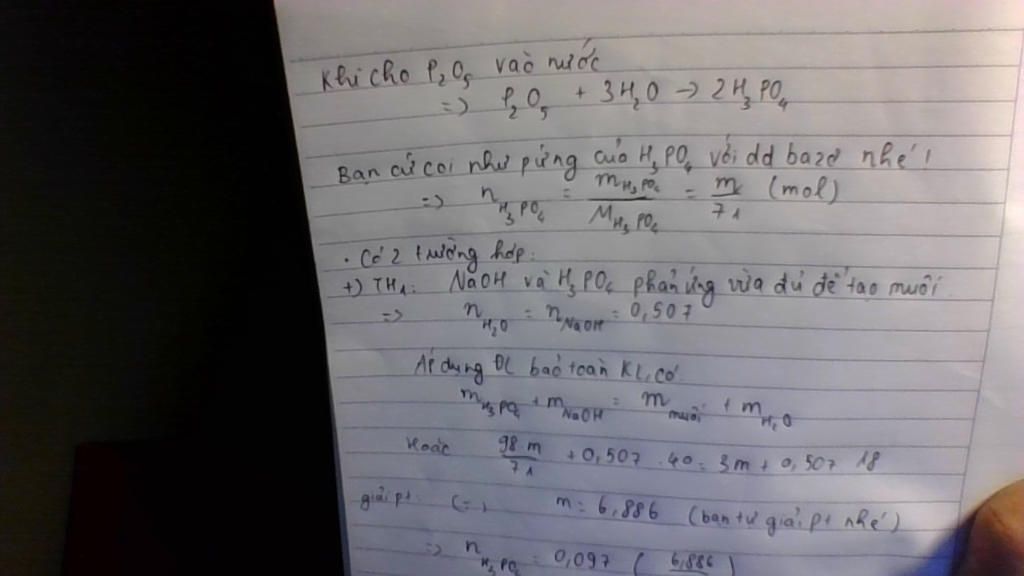 Khi cho P₂O₅ vào nước
=> P₂O₅ + 3H₂O → 2H₃PO₄
Bạn cứ coi như pứng của H₃PO₄ với dd bazơ nhé!
=> n H₃PO₄ = m H₃PO₄ / M H₃PO₄ = m / 71 (mol)
. Có 2 trường hợp:
+) TH₁: NaOH và H₃PO₄ phản ứng vừa đủ để tạo muối
=> n H₂O = n NaOH = 0,507
Áp dụng ĐL bảo toàn KL, có:
m H₃PO₄ + m NaOH = m muối + m H₂O
Hoặc 98m / 71 + 0,507 . 40 = 3m + 0,507 18
giải pt: (=) m = 6,886 (bạn tự giải pt nhé)
=> n H₃PO₄ = 0,097 ( 6,886 )